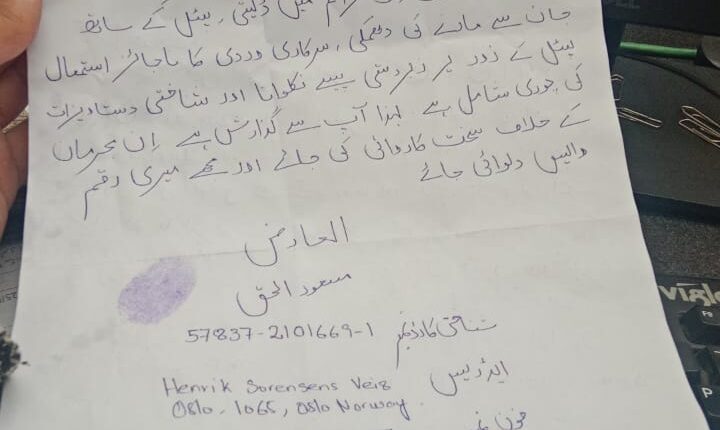 میں ڈکیتی، پسٹل کے ساتھ
جان سے مارنے کی دھمکی، سرکاری وردی کا ناجائز استعمال
پسٹل کے زور پر زبردستی پیسے نکلوانا اور شناختی دستاویزات
کی چوری شامل ہے لہذا آپ سے گذارش ہے ان مجرمان
کے خلاف سخت کاروائی کی جائے اور مجھے میری رقم
واپس دلوائی جائے
العارض
مسعود الحق
شناختی کارڈ نمبر 57837-2101669-1
ایڈریس Henrik Sorensens Veig
Oslo - 1065, Oslo Norway.
فون نمبر
viglo
F8
P